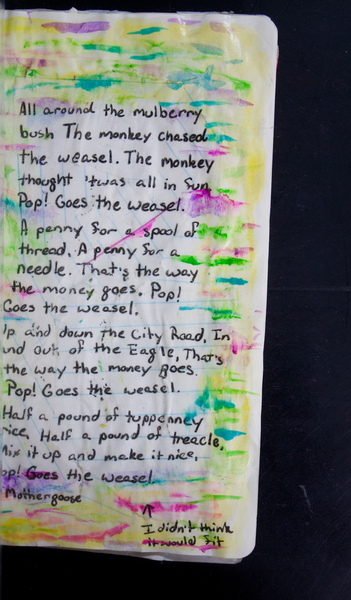 All around the mulberry
bush The monkey chased
the weasel. The monkey
thought 'twas all in fun
Pop! Goes the weasel.
A penny for a spool of
thread, A penny for a
needle. That's the way
the money goes. Pop!
Goes the weasel.
Up and down The City Road, In
and out of the Eagle, That's
the way the money goes.
Pop! Goes the weasel.
Half a pound of tuppenny
rice, Half a pound of treacle,
Mix it up and make it nice,
Pop! Goes the weasel
Mothergoose
I didn't think
it would fit